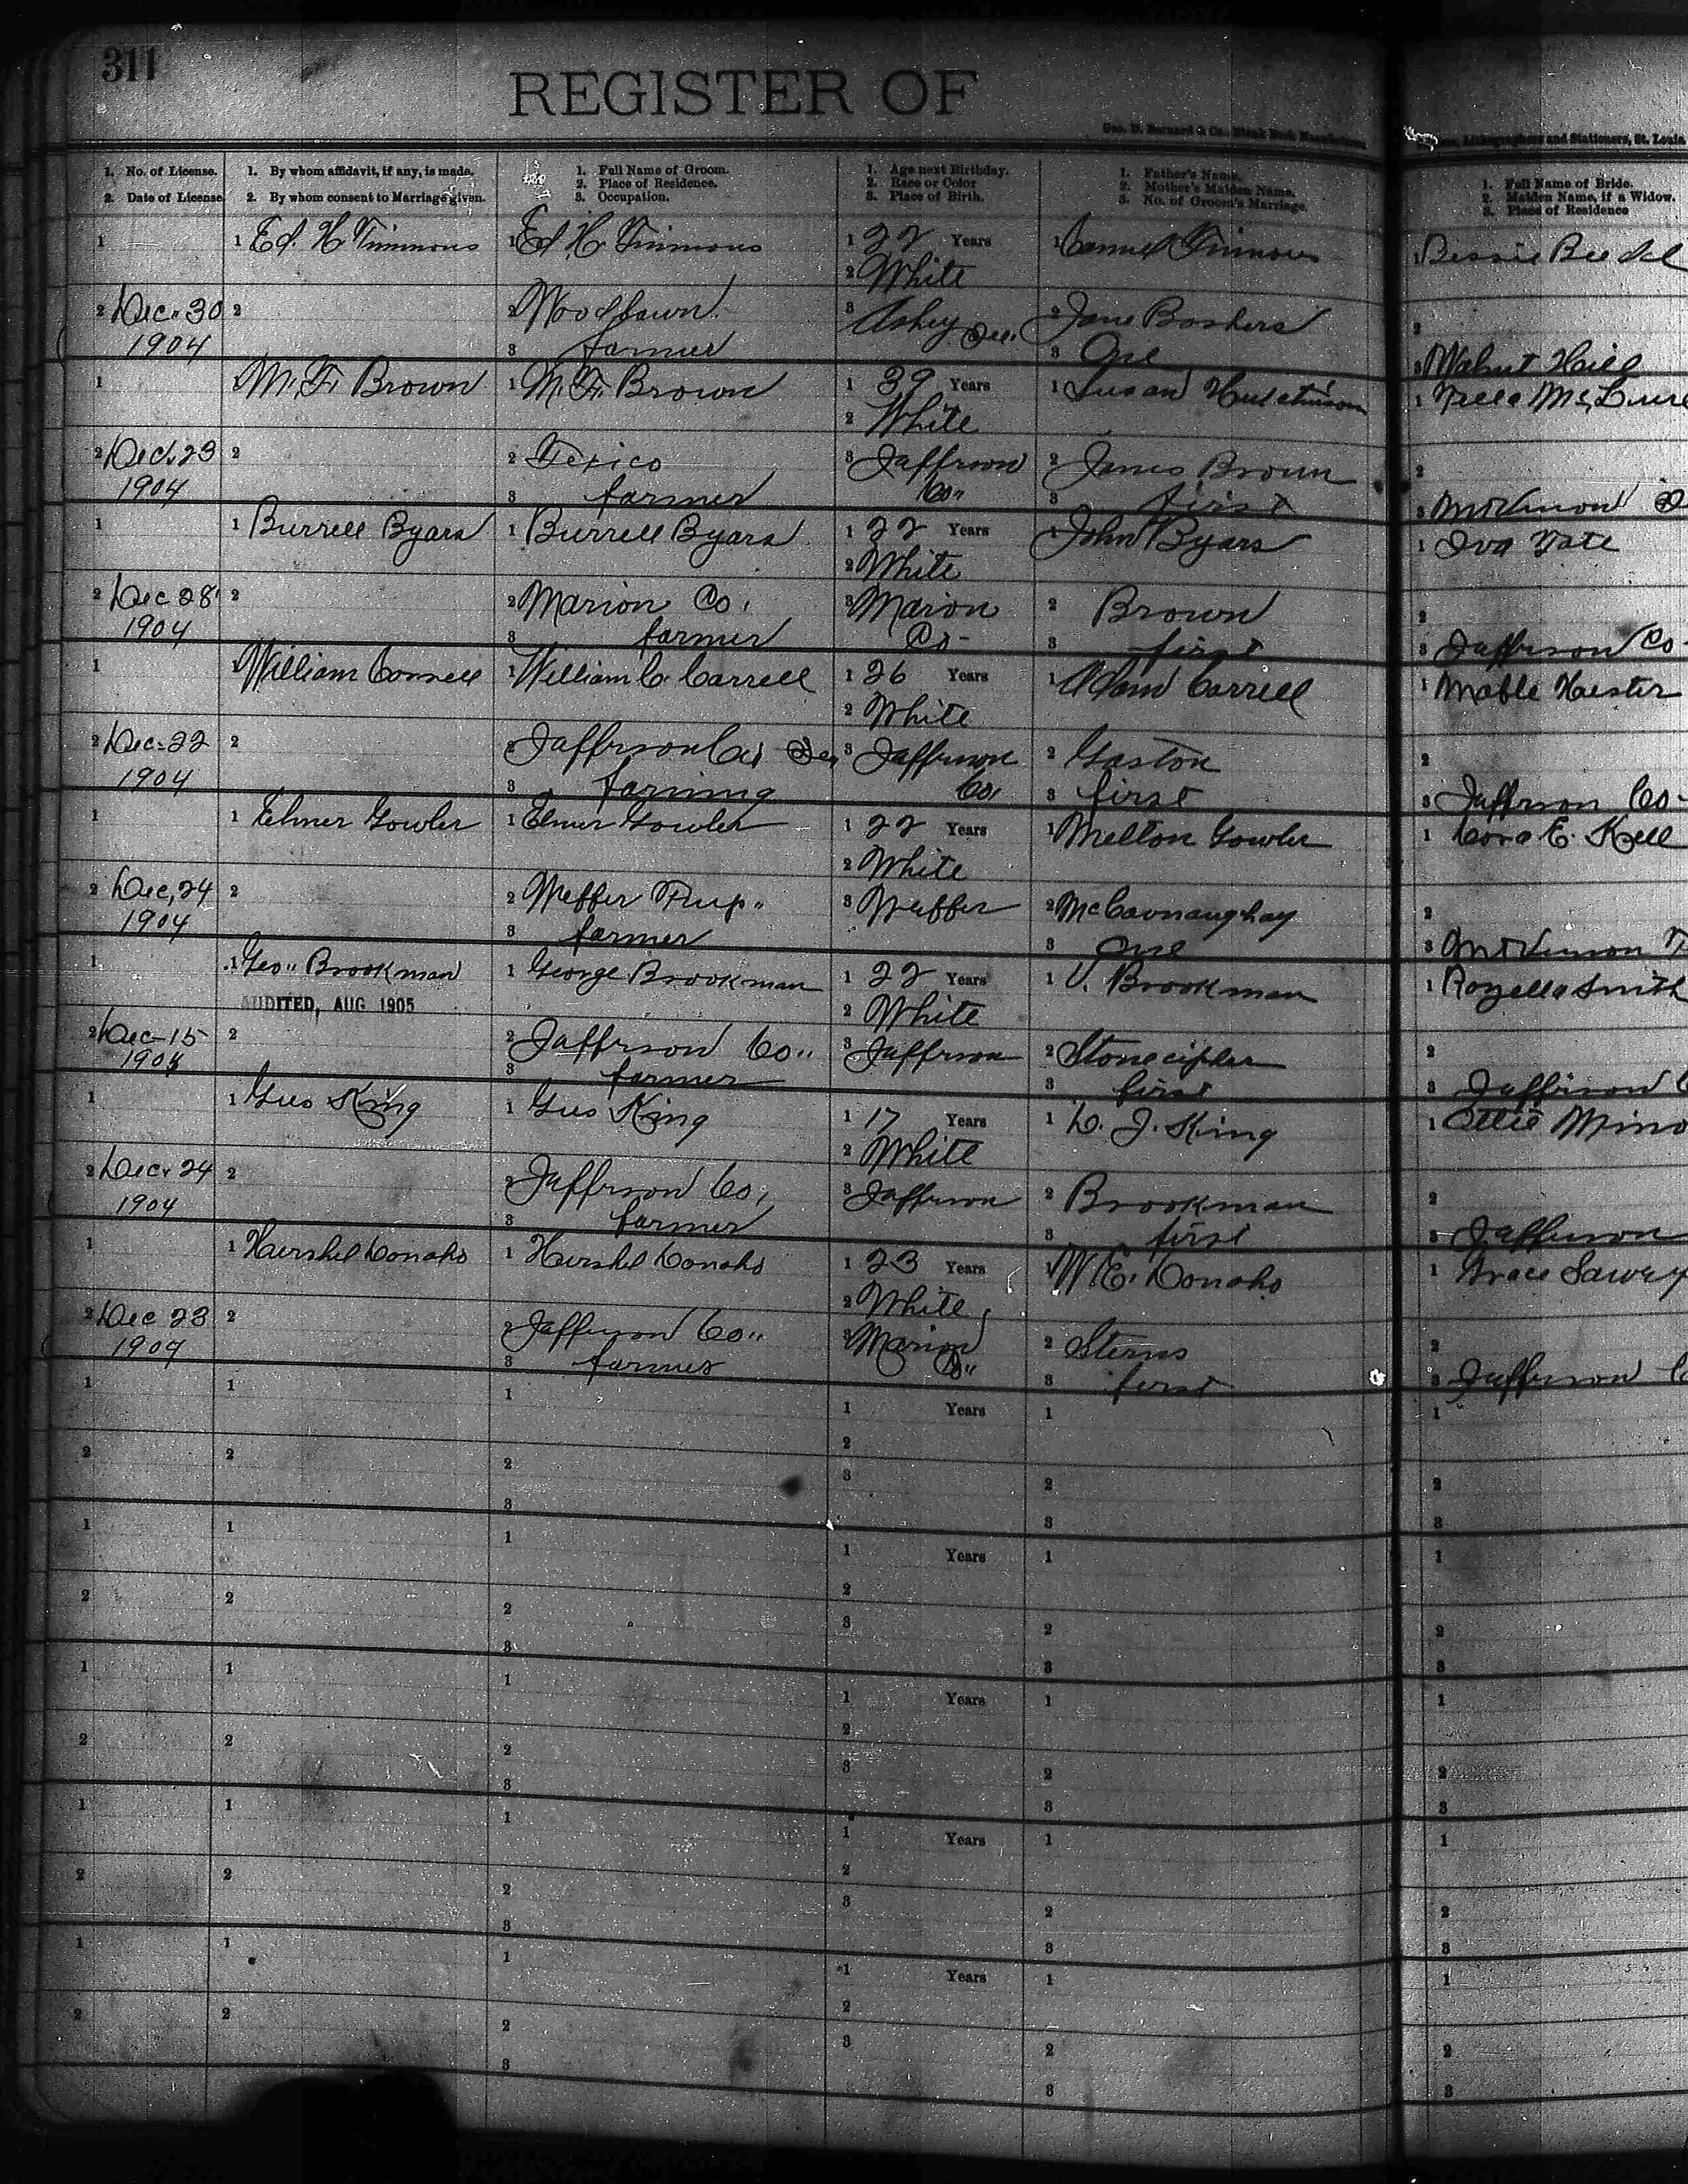 311
REGISTER OF
Geo. D. Barnard & Co., Blank Book
Lithographers and Stationers, St. Louis
1. No. of License.
2. Date of License.
1. By whom affidavit, if any, is made.
2. By whom consent to Marriage given.
1. Full Name of Groom.
2. Place of Residence.
3. Occupation.
1. Age next Birthday.
2. Race or Color
3. Place of Birth.
1. Father's Name.
2. Mother's Maiden Name.
3. No. of Groom's Marriage.
1. Full Name of Bride.
2. Maiden Name, if a Widow.
3. Place of Residence
1
2 Dec. 30
1904
1 Ed. H Timmons
2
1 Ed. H Timmons
2 Woodlawn
3 farmer
1 22 Years
2 White
3 Ashley Ill.
1 Timmons
2 Jane Boshers
3 One
1 Bessie
2
3 Walnut Hill
1
2 Dec. 23
1904
1 M. F. Brown
2
1 M. F. Brown
2 Texico
3 farmer
1 39 Years
2 White
3 Jefferson
Co.,
1 Susan Hutchinson
2 James Brown
3 first
1
2
3 Mt Vernon
1
2 Dec 28
1904
1 Burrell Byars
2
1 Burrell Byars
2 Marion Co.
3 farmer
1 22 Years
2 White
3 Marion
Co-
1 John Byars
2 Brown
3 first
1 Iva Tate
2
3 Jefferson Co-
1
2 Dec. 22
1904
1 William Correll
2
1 William C. Carrell
2 Jefferson Co
3 farming
1 26 Years
2 White
3 Jefferson
Co,
1 Adam Carrell
2 Gaston
3 first
1 Mable Hester
2
3 Jefferson Co-
1
2 Dec, 24
1904
1 Elmer Gowler
2
1 Elmer Gowler
2 Webber Twp.
3 farmer
1 22 Years
2 White
3 Webber
1 Melton Gowler
2 McCavnaughay
3 one
1 Cora E. Kell
2
3 Mt Vernon T
1
2 Dec-15
1904
1 Geo" Brookman
AUDITED, AUG 1905
2
1 George Brookman
2 Jefferson Co"
3 farmer
1 22 Years
2 White
3 Jefferson
1 V. Brookman
2 Stonecipher
3 first
1 Rozella Smith
2
3 Jefferson C
1
2 Dec. 24
1904
1 Gus King
2
1 Gus King
2 Jefferson Co,
3 farmer
1 17 Years
2 White
3 Jefferson
1 D. J. King
2 Brookman
3 first
1 Ollie Mino
2
3 Jefferson
1
2 Dec 23
1904
1 Hershel Donoho
2
1 Hershel Donoho
2 Jefferson Co"
3 farmer
1 23 Years
2 White
3 Marion
Co"
1 W. E. Donoho
2 Sterns
3 first
1 Grace Sawey
2
3 Jefferson C
1
2
1
2
1
2
3
1 Years
2
3
1
2
3
1
2
3
1
2
1
2
1
2
3
1 Years
2
3
1
2
3
1
2
3
1
2
1
2
1
2
3
1 Years
2
3
1
2
3
1
2
3
1
2
1
2
1
2
3
1 Years
2
3
1
2
3
1
2
3
1
2
1
2
1
2
3
1 Years
2
3
1
2
3
1
2
3